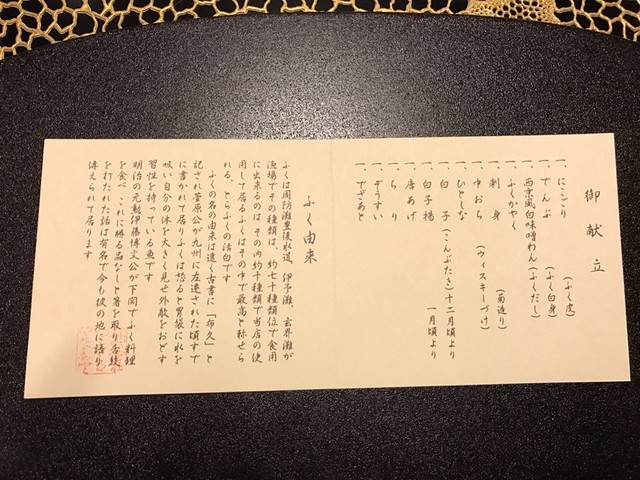 御献立
一、にこごり (ふく皮)
一、でんぶ (ふく白身)
一、西京風白味噌わん (ふくだし)
一、ふくかやく
一、刺身 (菊造り)
一、中おち (ウィスキーづけ)
一、ひとしな
一、白子 (こんぶたき) 十二月頃より
一、白子揚 一月頃より
一、唐あげ
一、ちり
一、ぞうすい
一、でざあと
ふく由来
ふくは周防灘豊後水道、伊予灘、玄界灘が
漁場でその種類は、約七十種類位で食用
に出来るのは その内約十種類で当店の使
用して居るふくはその中で最高と称せら
れる、とらふくの活白です
ふくの名の由来は遠く古書に「布久」と
記され菅原公が九州に左遷された頃すで
に書かれて居りふくは怒ると胃袋に水を
吸い自分の体を大きく見せ外敵をおどす
習性を持っている魚です
明治の元勲伊藤博文公が下関でふく料理
を食べ これに勝る品なしと箸を取り舌鼓
を打たれた話は有名で今も彼の地に語り
傳えられて居ります